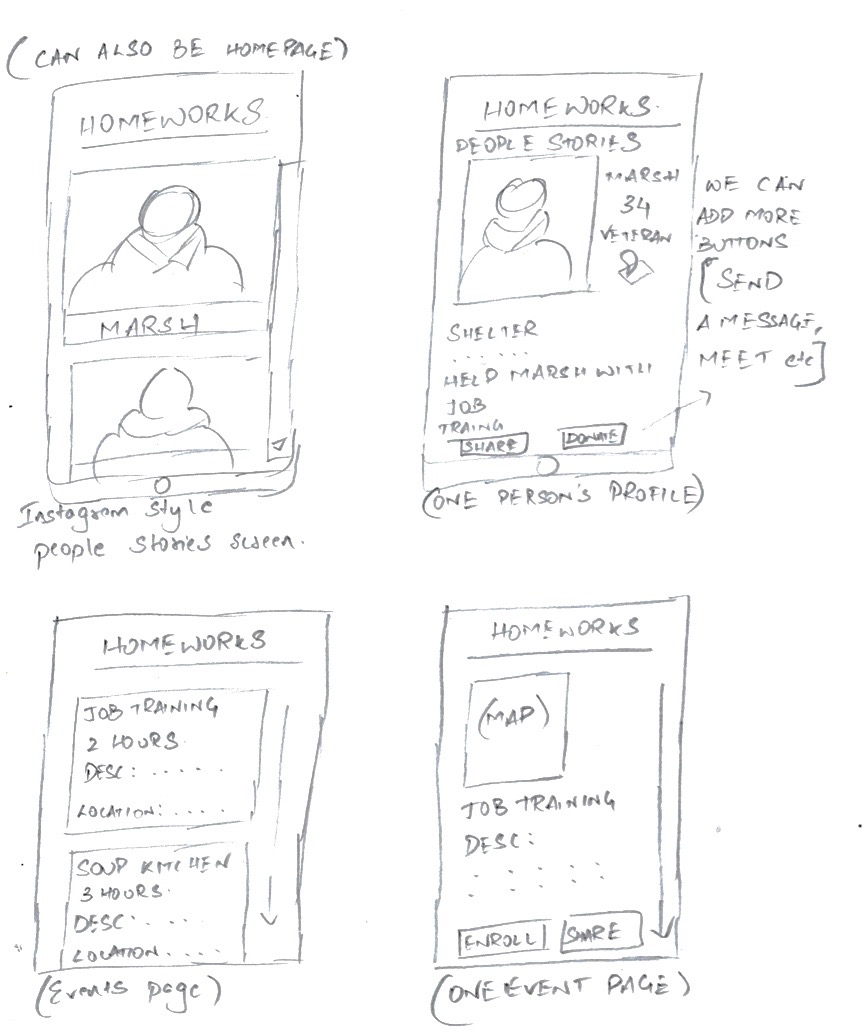 (CAN ALSO BE HOMEPAGE)
HOMEWORKS
MARSH
Instagram style
people stories screen.
HOMEWORKS.
PEOPLE STORIES
MARSH
34
VETERAN
SHELTER
......
HELP MARSH WITH
JOB
TRAING
SHARE
DONATE
(ONE PERSON'S PROFILE)
WE CAN
ADD MORE
BUTTONS
[SEND
A MESSAGE,
MEET etc]
HOMEWORKS
JOB TRAINING
2 HOURS.
DESC: .....
LOCATION: ....
SOUP KITCHEN
3 HOURS.
DESC: ....
LOCATION.....
(Events page)
HOMEWORKS
(MAP)
JOB TRAINING
DESC:
ENROLL
SHARE
(ONE EVENT PAGE)